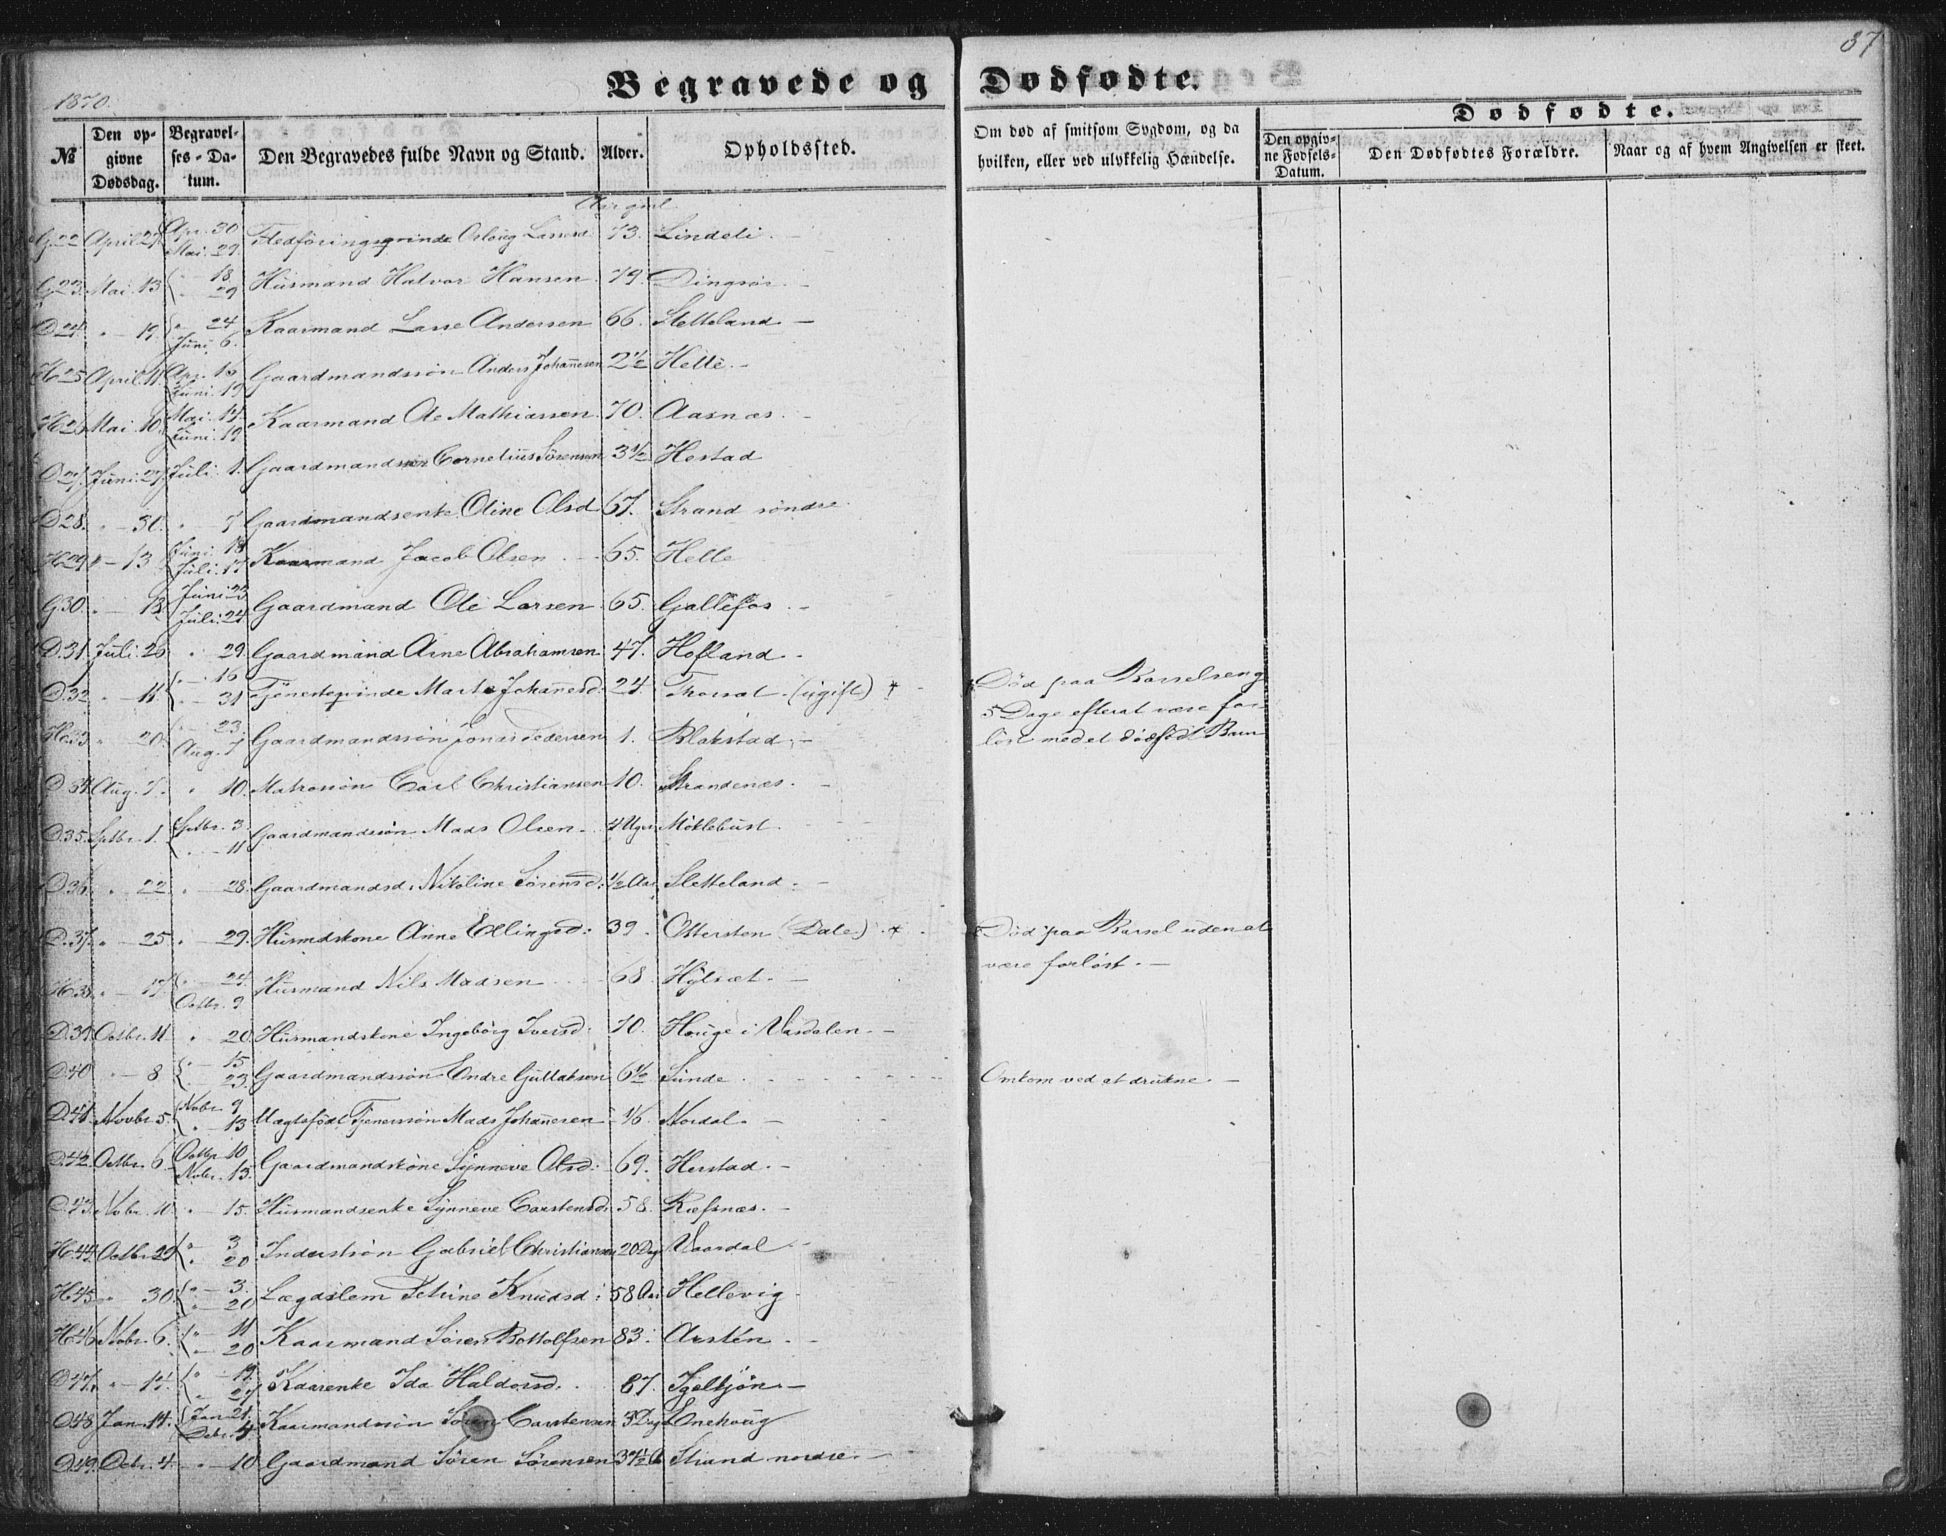 87
1870.
Begravede og Dødfødte.
Dødfødte.
№
Den opgivne Dødsdag.
Begravelses-Datum.
Den Begravedes fulde Navn og Stand.
Alder.
Opholdssted.
Om død af smitsom Sygdom, og da hvilken, eller ved ulykkelig Hændelse.
Den opgivne Fødsels-Datum.
Den Dødfødtes Forældre.
Naar og af hvem Angivelsen er skeet.
G22 April 27 Apr. 30 Mai. 29. 73. Lindeli. -
G23. Mai. 13 " - 18 " - 29 Husmand Halvor Hansen 79.
D24. " - 19. " 24 Juni 6. Kaarmand Lasse Andersen 66. Sletteland -
H25 April 11 Apr. 16 Juni. 19 Gaardmandssøn Anders Johannesen 2½ Helle. -
H26 Mai. 10. Mai. 14. Juni. 19 Kaarmand Ole Mathiassen. 70. Aasnæs. -
D27. Juni. 27. Juli. 1. Gaardmandssøn Cornelius Sørensen 3½ Hestad
D28. " - 30. " 7 Gaardmandsenke Oline Olsd 67. Strand søndre.
H29 " - 13 Juni. 18 Juli. 17 Kaarmand Jacob Olsen - 65. Helle
G30. " - 18 Juni 23 Juli. 24 Gaardmand Ole Larsen 65. Gallefos. -
D.31. Juli. 26 " 29. Gaardmand Arne Abrahamsen 47. Hofland -
D.32 " - 11. " - 16 " - 31 Tjenestepinde Marte Johannesd. 24. (ugift) + Død paa Barselseng
5 Dage efterat være for-
løst med et dødfødt Barn
H.33 " 20. " - 23. Aug. 7 Gaardmandssøn Jonas Pedersen 1. Blakstad. -
D.34. Aug. 7. " 10. Matrossøn Carl Christiansen 10. Strandenæs. -
D.35. Sptbr. 1. Sptbr. 3. " - 11 Gaardmandssøn Mads Olsen. 4 Uger Møklebust.
D.36. " - 22 " - 28. Gaardmandsd. Nikoline Sørensd. ½ Aar Sletteland. -
D.37. " - 25 " - 29. Husmdskone Anne Ellingsd: 39. Ottersten (Dale) + Død paa Barsel uden at
være forløst. -
H38. " - 17. " - 24. Octbr. 9 Husmand Nils Madsen 68 -
D.39. Octbr. 11 " 20 Husmandskone Ingeborg Iversd: 70. Hauge i Vardalen. -
D40 " - 8 " - 15 " 23. Gaardmandssøn Endre Gullaksen 6½ Sunde. Omkom ved at drukne. -
D.41. Novbr 5. Nobr 9 " - 13 Uægtefødt Tjenersøn Mads Johannesen 1/6 Nordal. -
D.42. Octbr. 6. Octbr 10 Nobr. 13. Gaardmandskone Synneve Olsd: 69. Herstad. -
D.43. Nobr. 10. " - 15. Husmandsenke Synneve Carstensd. 58. Ræfsnæs. -
H.44. Octbr. 29 " - 3 " 20 Inderstsøn Gabriel Christiansen 20 Dag Vaardal -
H45 " 30. " - 3. " - 20 Lægdslem Petrine Knudsd: 58 Aar Hellevig.
H46 Nobr. 6. " - 11 " - 20 Kaarmand Søren Bottolfsen 83. -
D.47. " - 14. " - 19 " 27 Kaarenke Ida Haldorsd. 87. Igeltjøn -
D48. Jan. 14. Jan 21. Kaarmandssøn Søren Carstensen 3 Dag Lonehoug
D.49. Dcbr. 4. " - 10 Gaardmand Søren Sørensen 37½ A Strand nordre. -